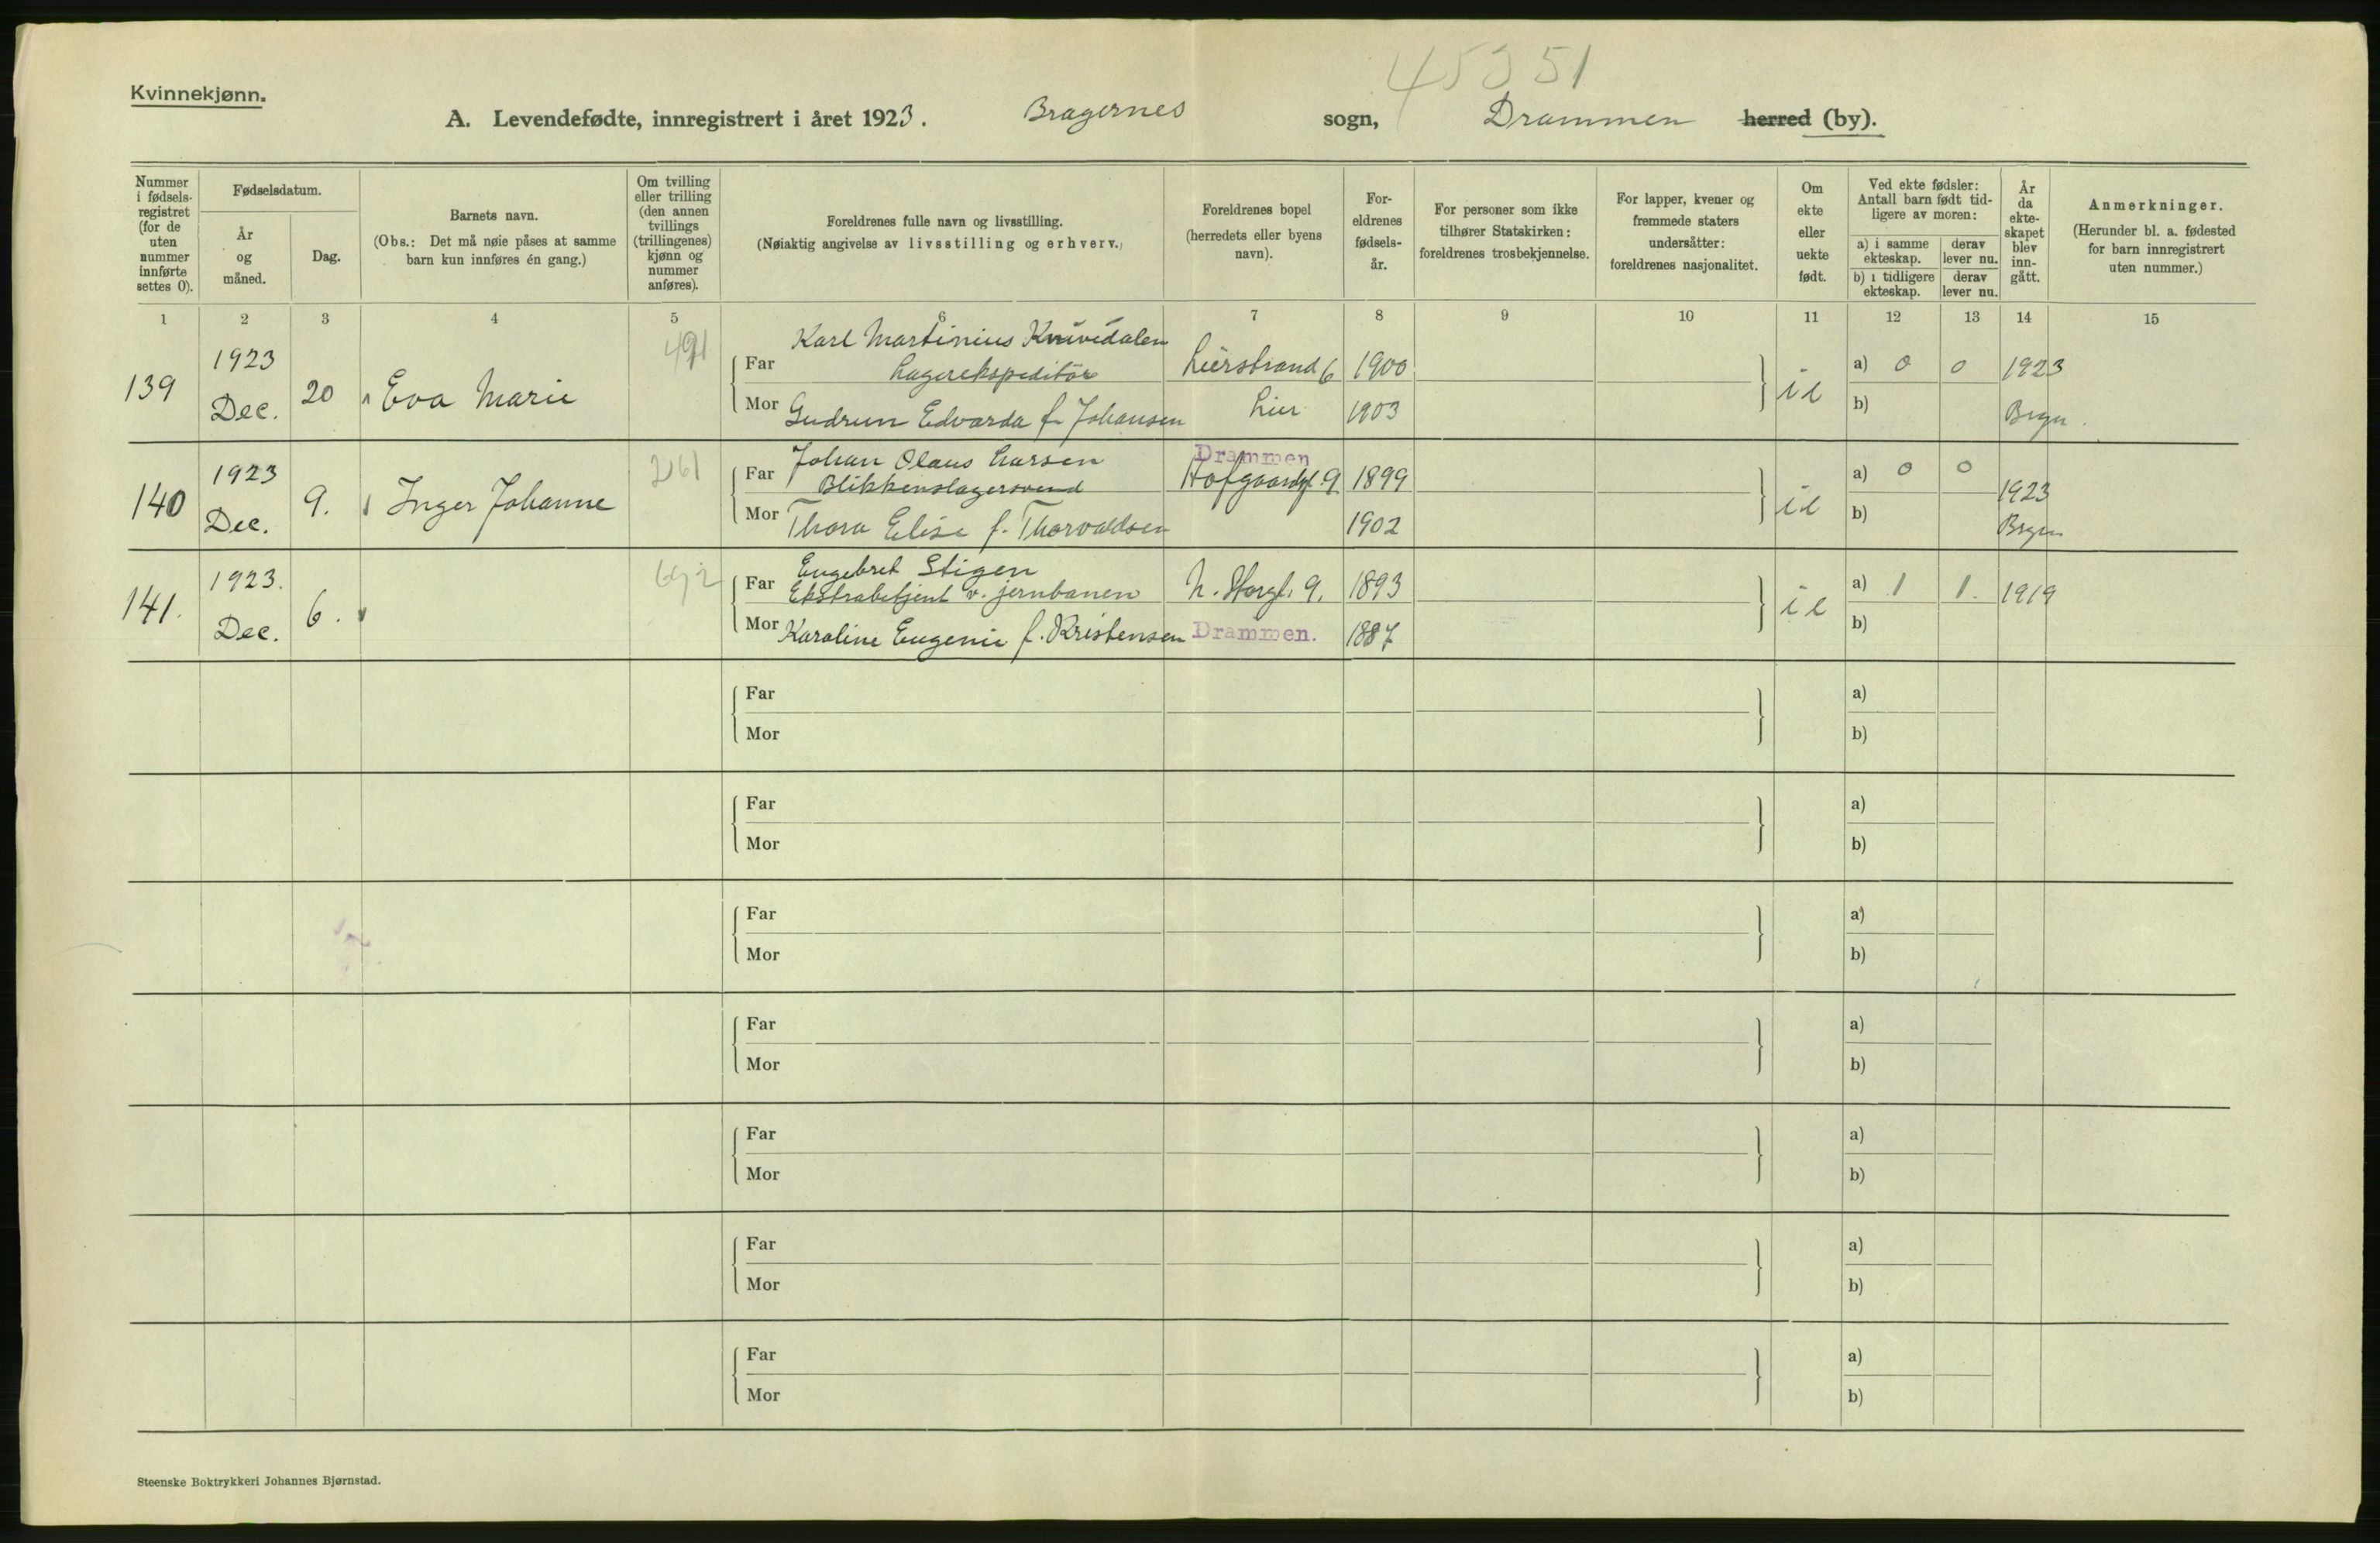 45351
Kvinnekjønn.
A. Levendefødte, innregistrert i året 1923. Bragernes sogn, Drammen herred (by).
Nummer i fødsels-registret (for de uten nummer innførte settes 0).
Fødselsdatum.
År og måned.
Dag.
Barnets navn.
(Obs.: Det må nøie påses at samme barn kun innføres én gang.)
Om tvilling eller trilling (den annen tvillings (trillingenes) kjønn og nummer anføres).
Foreldrenes fulle navn og livsstilling.
(Nøiaktig angivelse av livsstilling og erhverv.)
Foreldrenes bopel (herredets eller byens navn).
For-eldrenes fødsels-år.
For personer som ikke tilhører Statskirken: foreldrenes trosbekjennelse.
For lapper, kvener og fremmede staters undersåtter: foreldrenes nasjonalitet.
Om ekte eller uekte født.
Ved ekte fødsler: Antall barn født tid-ligere av moren:
a) i samme ekteskap.
derav lever nu.
b) i tidligere ekteskap.
derav lever nu.
År da ekte-skapet blev inn-gått.
Anmerkninger.
(Herunder bl. a. fødested for barn innregistrert uten nummer.)
1 2 3 4 5 6 7 8 9 10 11 12 13 14 15
139 1923 Dec. 20 Eva Marie 491
Far Karl Martinius
Lagerekspeditör Lierstrand 6 1900
Mor Gudrun Edvarda f. Johansen Lier 1903
a) 0 0 1923
b) Brgn.
140 1923 Dec. 9. Inger Johanne 261
Far Johan Olaus Larsen
Blikkenslagersvend Drammen Hofgaardgt. 9 1899
Mor Thora Elise f. Thorvaldsen 1902
a) 0 0 1923
b) Brgn
141. 1923. Dec. 6.
Far Engebret Stigen
Ekstrabetjent v. jernbanen N. Storgt. 9. 1893
Mor Karoline Eugenie f. Kristensen Drammen. 1887
a) 1 1. 1919
b)
Far a)
Mor b)
Far a)
Mor b)
Far a)
Mor b)
Far a)
Mor b)
Far a)
Mor b)
Far a)
Mor b)
Far a)
Mor b)
Steenske Boktrykkeri Johannes Bjørnstad.